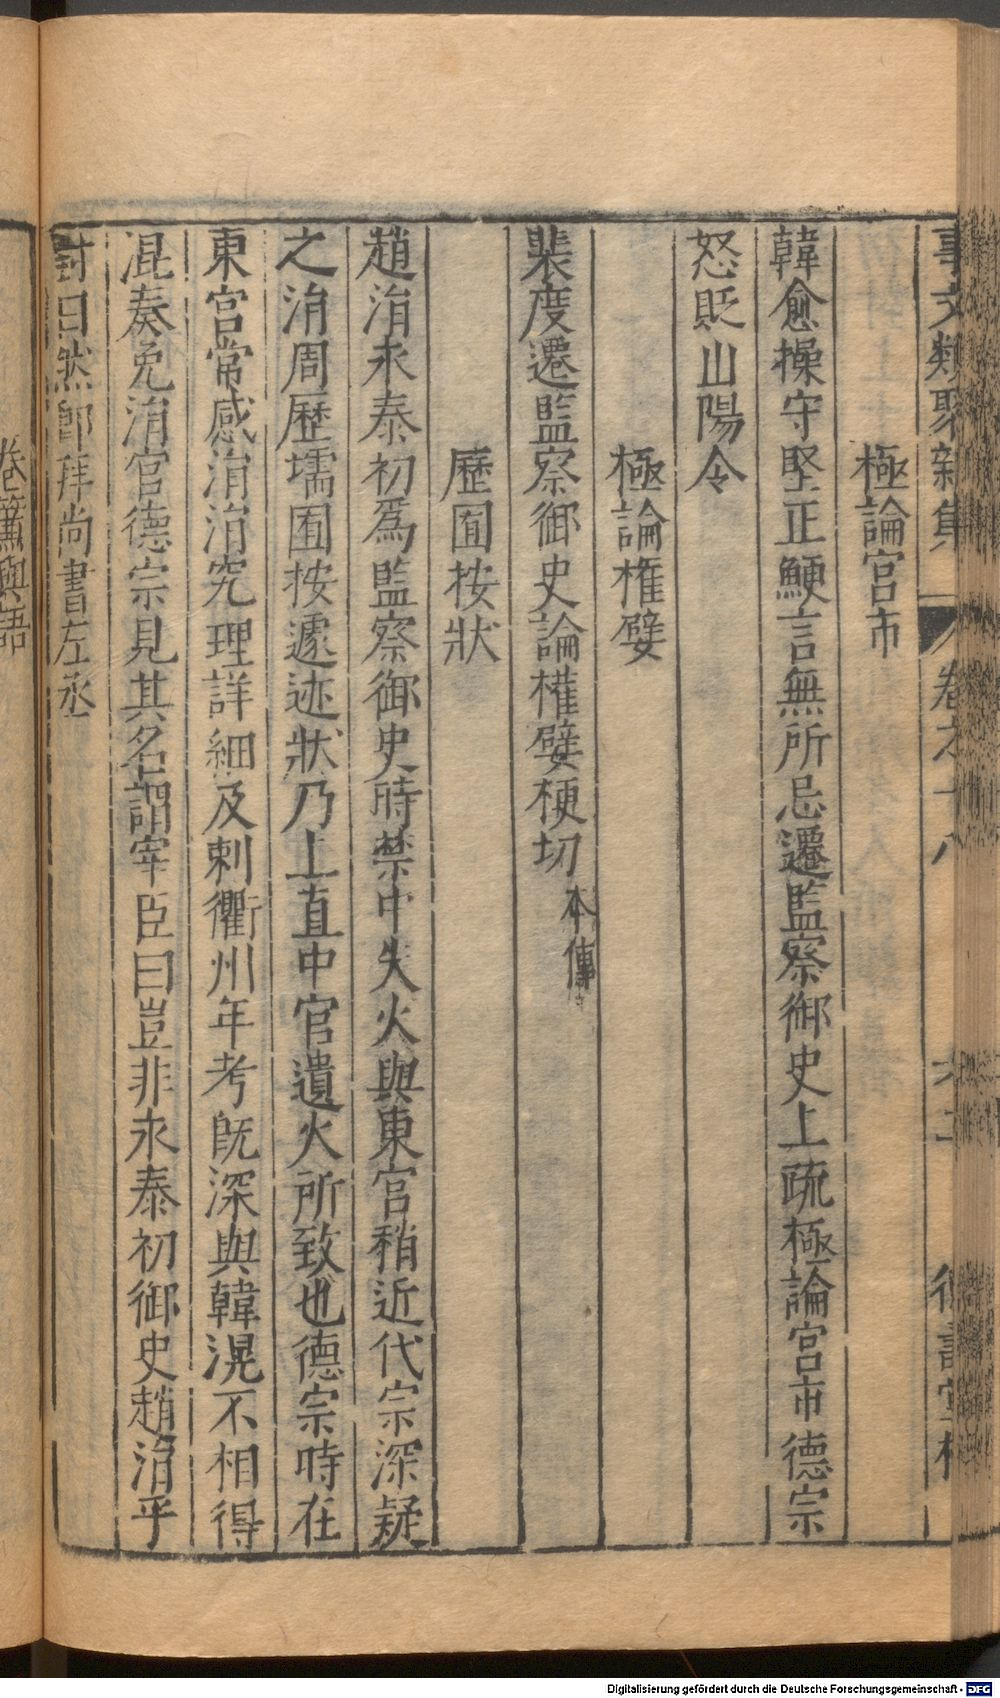 事文類聚新集 卷之十八 六十二
極論宮市
韓愈操守堅正鯁言無所忌遷監察御史上疏極論宮市德宗
怒貶山陽令
極論權嬖
裴度遷監察御史論權嬖梗切本傳
歷囿按狀
趙涓永泰初爲監察御史時禁中失火與東宮稍近代宗深疑
之涓周歷壖囿按遽迹狀乃上直中官遺火所致也德宗時在
東宮常感涓涓究理詳細及刺衢州年考旣深與韓滉不相得
混奏免涓官德宗見其名謂宰臣曰豈非永泰初御史趙涓乎
對曰然卽拜尚書左丞
卷簾與語
Digitalisierung gefördert durch die Deutsche Forschungsgemeinschaft - DFG